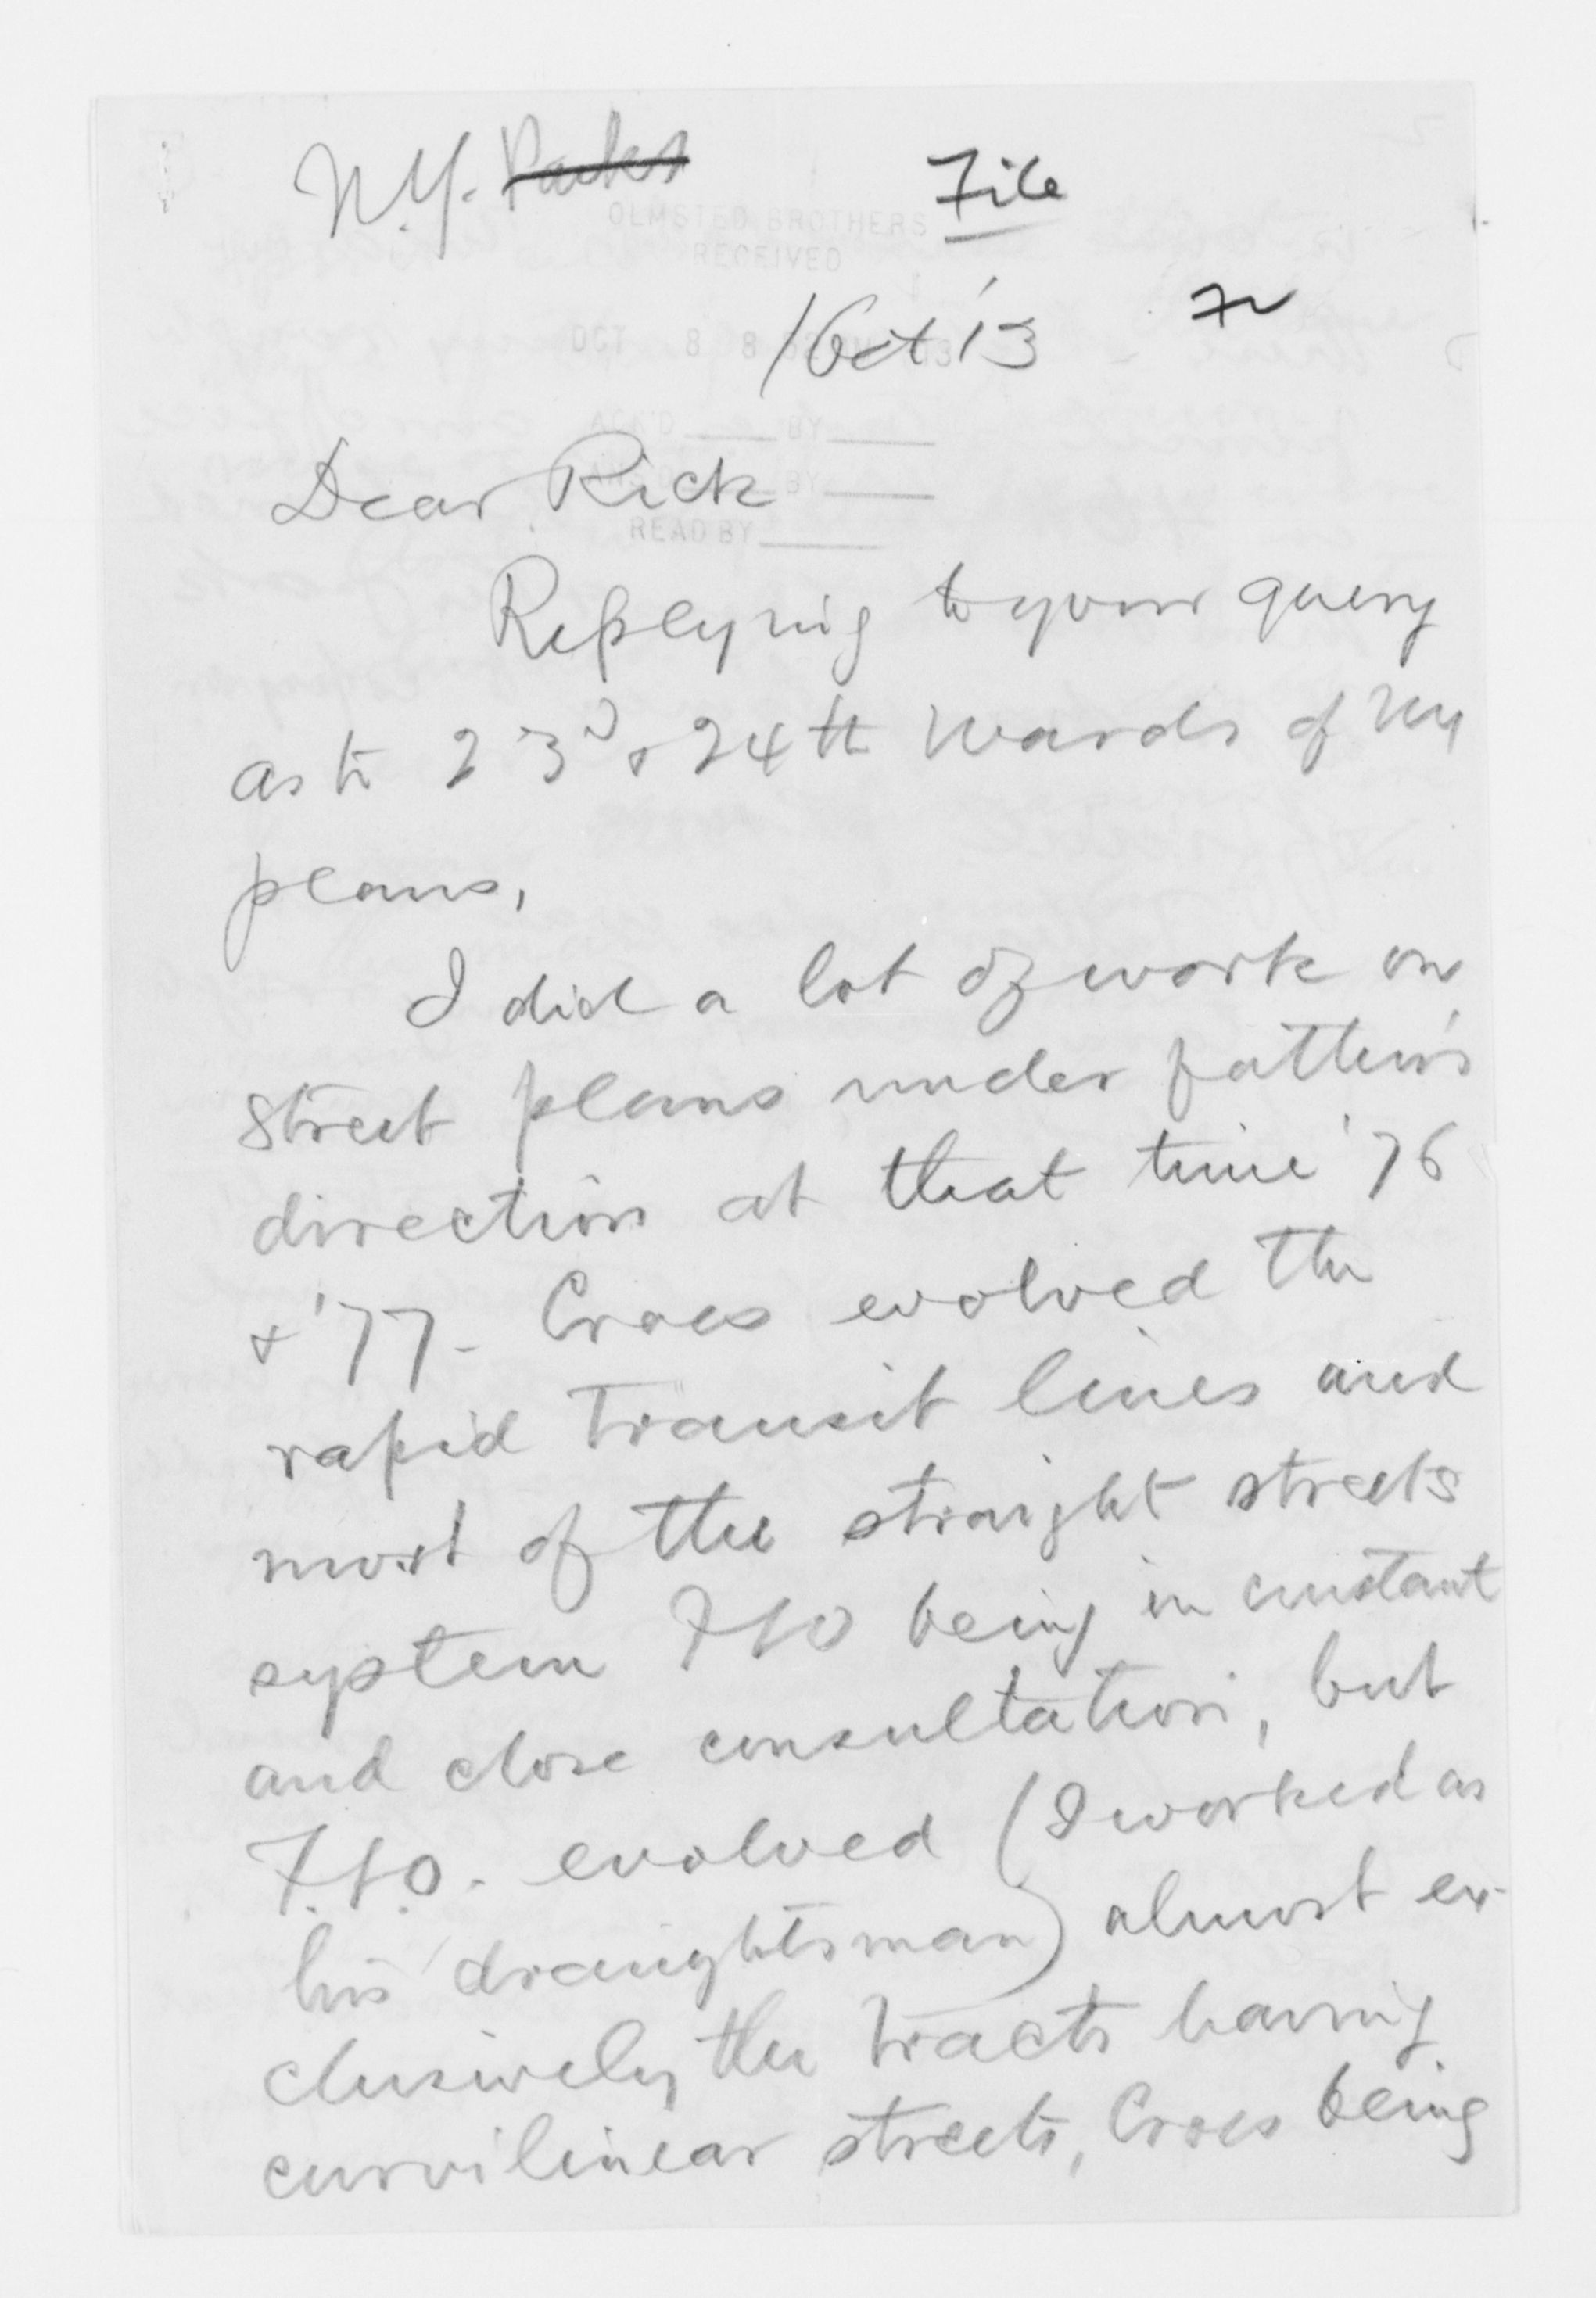 N.Y. Parks File
OLMSTED BROTHERS
RECEIVED
1 Oct '13
OCT 8 8
ACK'D BY
BY
READ BY
Dear Rick
Replying to your query
as to 23d & 24th Wards of NY
plans,
I did a lot of work on
street plans under father's
direction at that time '76
& '77 - Croes evolved the
rapid transit lines and
most of the straight streets
system FLO being in constant
and close consultation, but
F.L.O. evolved (I worked as
his draughtsman) almost ex-
clusively the tracts having
curvilinear streets, Croes being